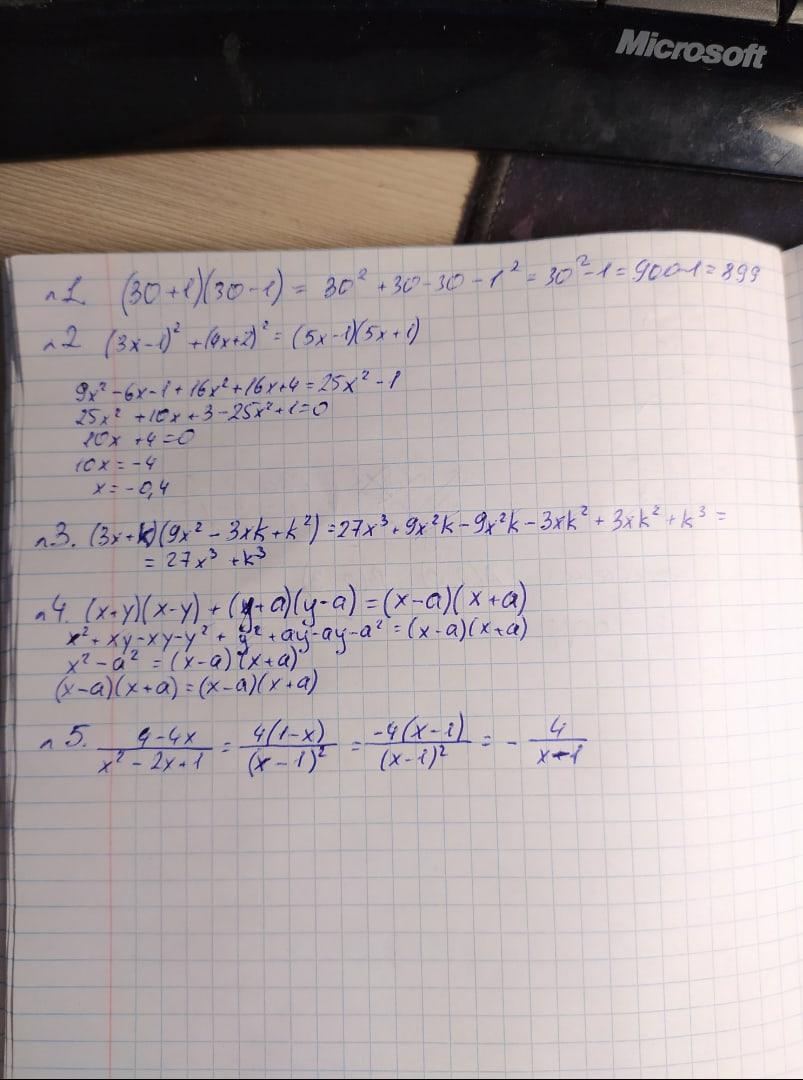 Microsoft
n1. (30+1)(30-1) = 30² + 30 - 30 - 1² = 30² - 1 = 900-1 = 899
n2 (3x-1)² + (4x+2)² = (5x-1)(5x+1)
9x² - 6x - 1 + 16x² + 16x + 4 = 25x² - 1
25x² + 10x + 3 - 25x² + 1 = 0
10x + 4 = 0
10x = -4
x = -0,4
n3. (3x+k)(9x² - 3xk + k²) = 27x³ + 9x²k - 9x²k - 3xk² + 3xk² + k³ =
= 27x³ + k³
n4. (x+y)(x-y) + (y+a)(y-a) = (x-a)(x+a)
x² + xy - xy - y² + y² + ay - ay - a² = (x-a)(x+a)
x² - a² = (x-a)(x+a)
(x-a)(x+a) = (x-a)(x+a)
n5. 4-4x / x² - 2x + 1 = 4(1-x) / (x-1)² = -4(x-1) / (x-1)² = - 4 / x-1